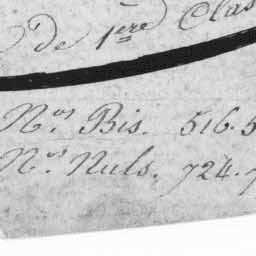 de 1ère Clas
Nos Bis. 516.5
Nos Nuls. 724.